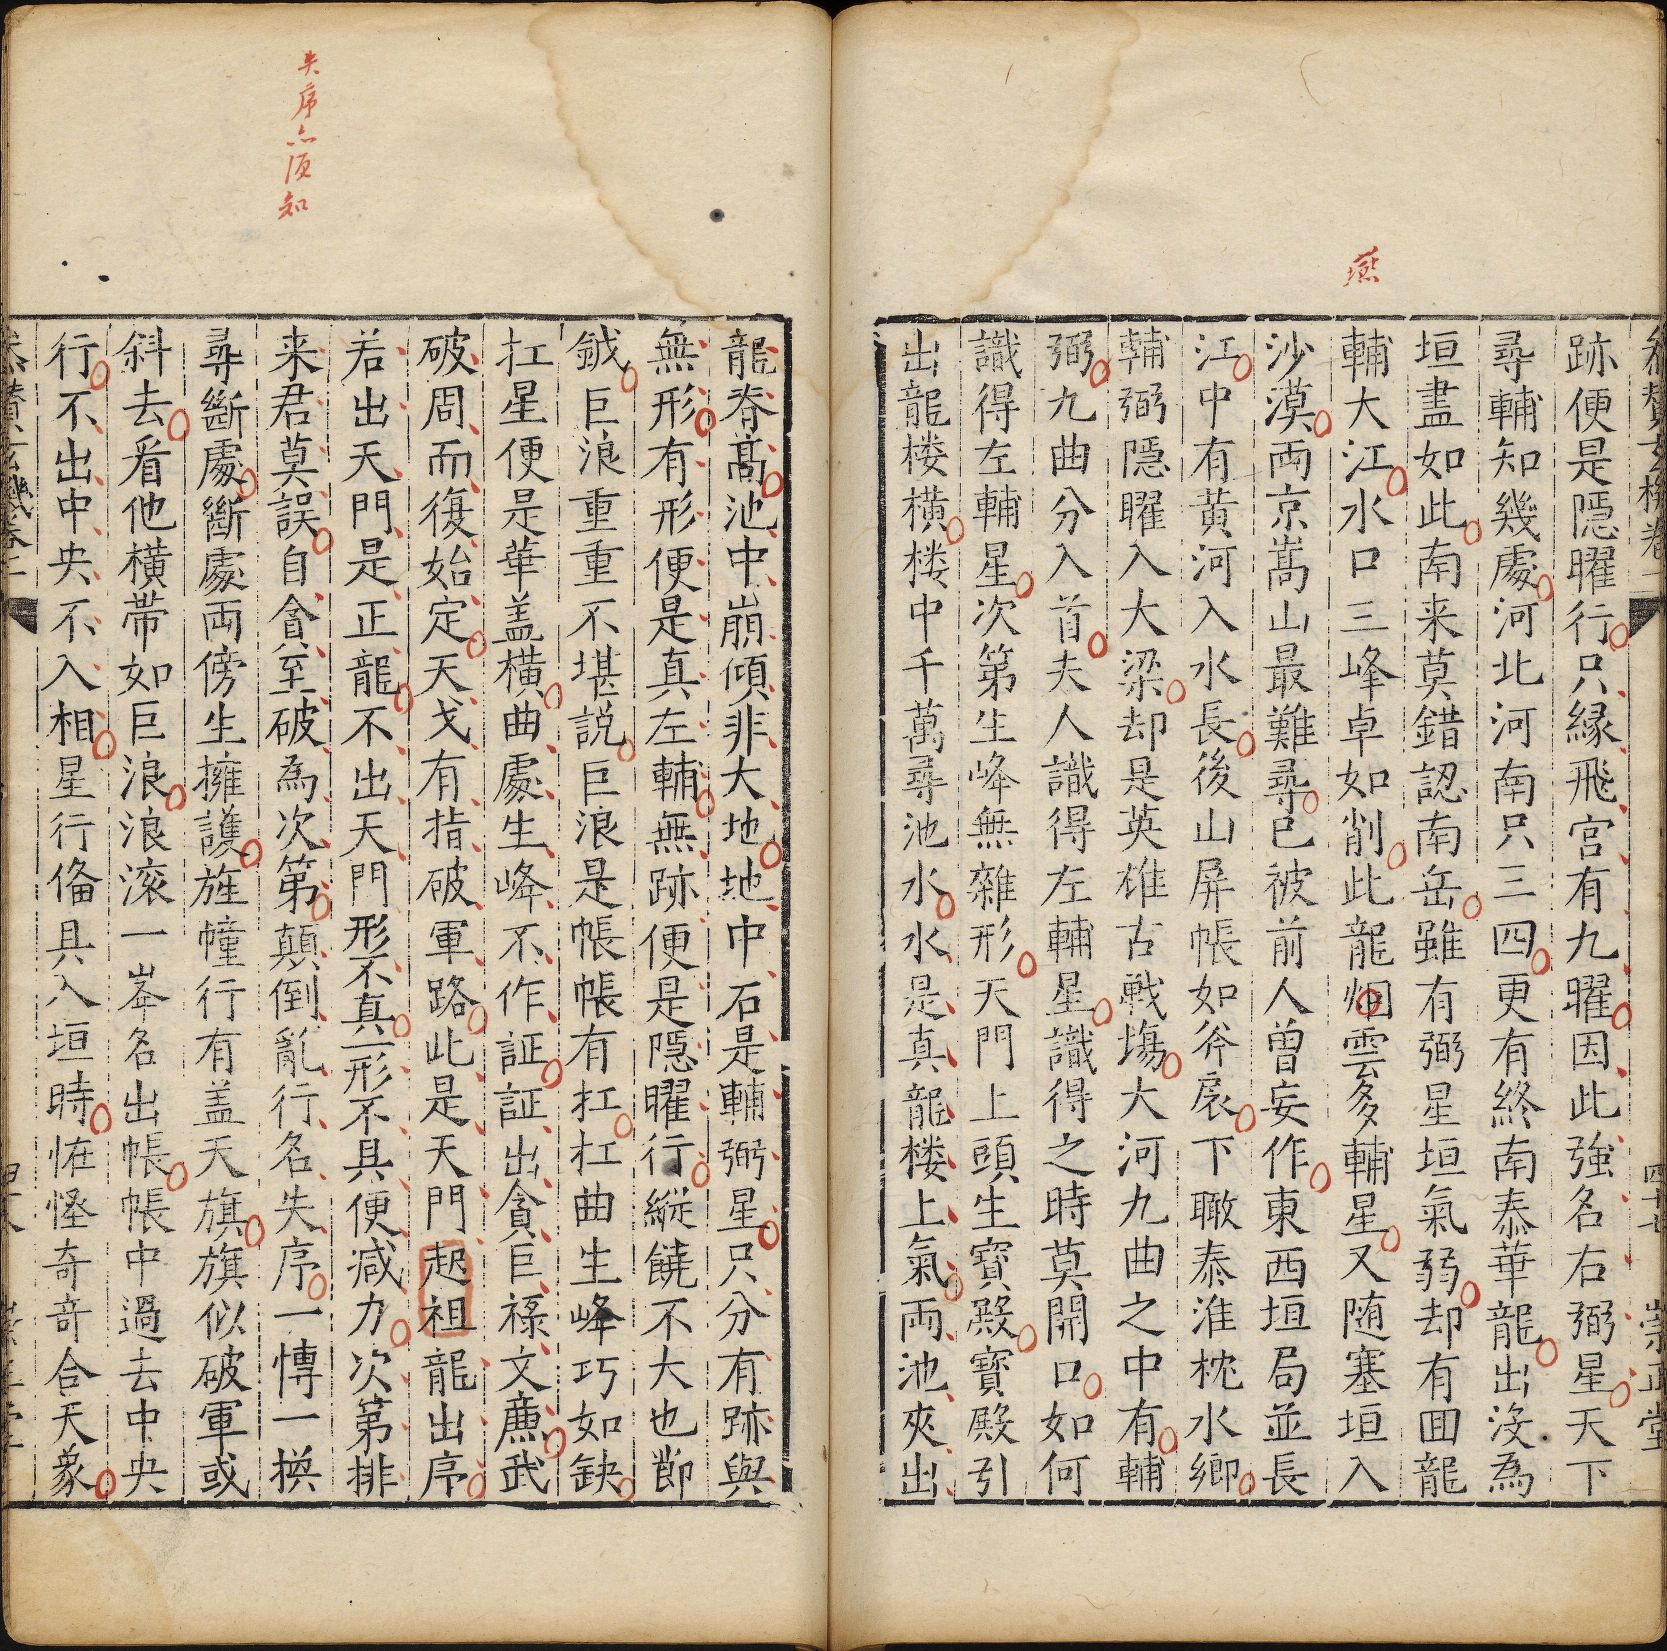 燕
跡便是隱曜行只緣飛宮有九曜因此強名右弼星天下
尋輔知幾處河北河南只三四更有終南泰華龍出沒為
垣盡如此南来莫錯認南岳雖有弼星垣氣弱却有回龍
輔大江水口三峰卓如削此龍烟雲多輔星又随塞垣入
沙漠両京嵩山最難尋已被前人曾妄作東西垣局並長
江中有黃河入水長後山屏帳如斧扆下瞰泰淮枕水鄉
輔弼隱曜入大梁却是英雄古戰塲大河九曲之中有輔
弼九曲分入首夫人識得左輔星識得之時莫開口如何
識得左輔星次第生峰無雜形天門上頭生寶殿寶殿引
出龍楼橫楼中千萬尋池水水是真龍楼上氣両池夾出
失序亦須知
龍脊高池中崩傾非大地地中石是輔弼星只分有跡與
無形有形便是真左輔無跡便是隱曜行縱饒不大也節
鉞巨浪重重不堪説巨浪是帳帳有扛扛曲生峰巧如缺
扛星便是華盖橫曲處生峰不作証証出貪巨祿文廉武
破周而復始定天戈有指破軍路此是天門起祖龍出序
若出天門是正龍不出天門形不真形不具便减力次第排
来君莫誤自貪至破為次第顛倒亂行名失序一慱一換
尋斷處斷處両傍生擁護旌幢行有盖天旗旗似破軍或
斜去看他橫帶如巨浪浪滚一峯名出帳帳中過去中央
行不出中央不入相星行俻具入垣時恠怪奇奇合天象